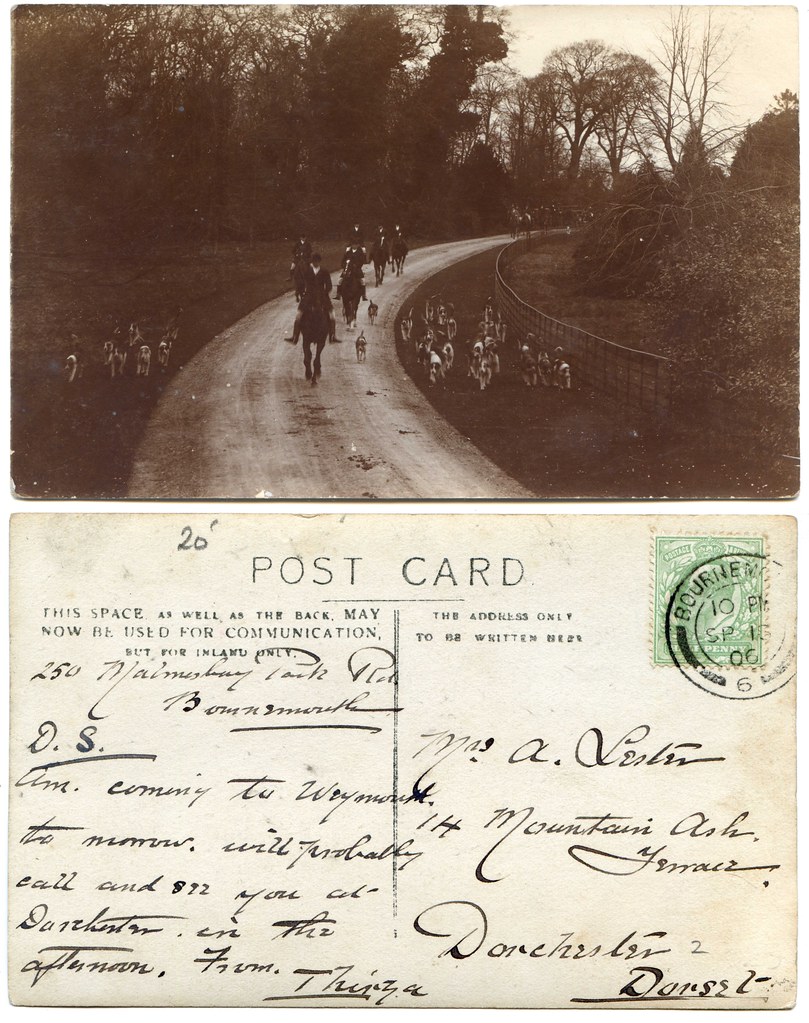 20
POST CARD
THIS SPACE AS WELL AS THE BACK, MAY
NOW BE USED FOR COMMUNICATION,
BUT FOR INLAND ONLY.
250 Malmesbury Park Rd
Bournemouth
D. S.
Am. coming to Weymouth.
to morrow. will probably
call and see you at
Dorchester. in the
afternoon. From.
Thirza
THE ADDRESS ONLY
TO BE WRITTEN HERE
POSTAGE
PENNY
BOURNEM
10 PM
SP 1
06
6
Mrs A. Lester
14 Mountain Ash.
Terrace.
Dorchester 2
Dorset